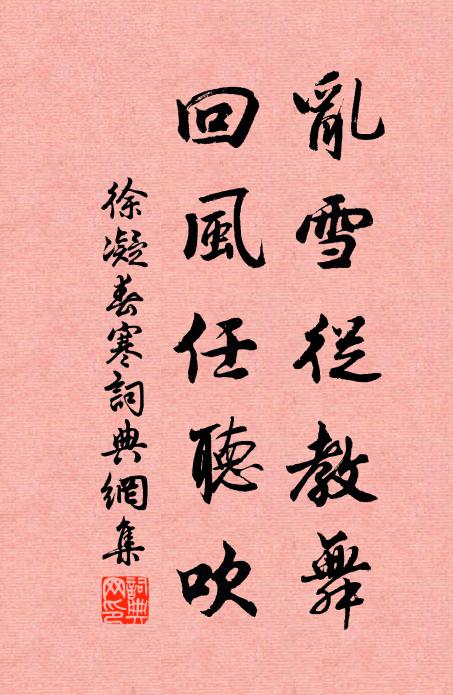 亂雪從教舞
回風任聽吹
徐凝春寒詞典網集
詞典網印